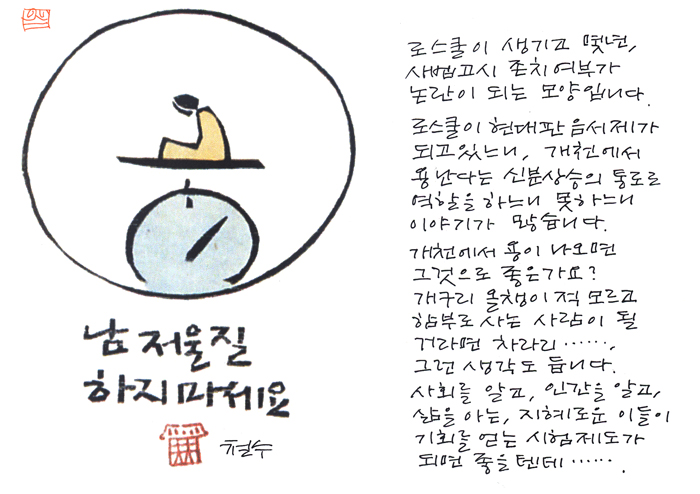 남 저울질
하지 마세요
철수
로스쿨이 생기고 몇년,
사법고시 존치여부가
논란이 되는 모양입니다.
로스쿨이 현대판 음서제가
되고있느니, 개천에서
용난다는 신분상승의 통로로
역할을 하느니 못하느니
이야기가 많습니다.
개천에서 용이 나오면
그것으로 좋은가요?
개구리 올챙이적 모르고
함부로 사는 사람이 될
거라면 차라리……,
그런 생각도 듭니다.
사회를 알고, 인간을 알고,
삶을 아는, 지혜로운 이들이
기회를 얻는 시험제도가
되면 좋을텐데…….